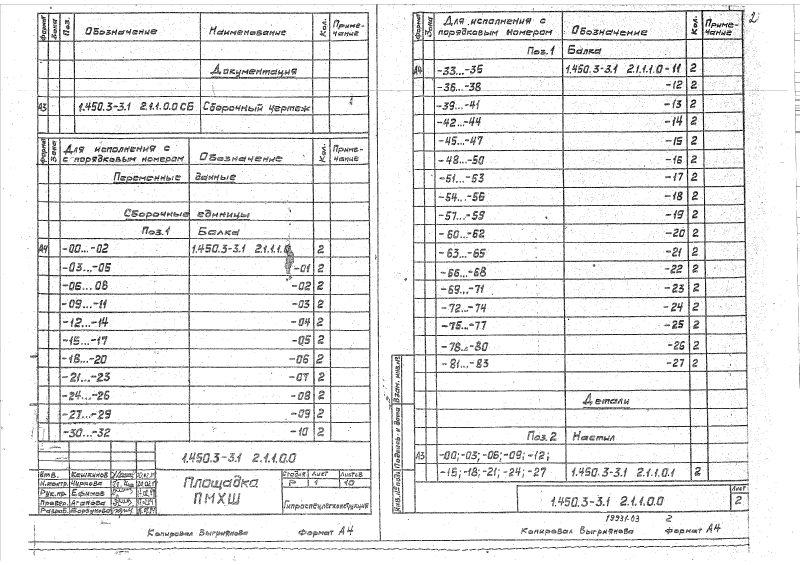 Формат Зона Поз. Обозначение Наименование Кол. Приме-
чание
Документация
А3 1.450.3-3.1 2.1.1.0.0 СБ Сборочный чертеж
Формат Зона Для исполнения с Обозначение Кол. Приме-
с порядковым номером чание
Переменные данные
Сборочные единицы
Поз.1 Балка
А4 -00...-02 1.450.3-3.1 2.1.1.1.0 2
-03...-05 -01 2
-06...08 -02 2
-09...-11 -03 2
-12...-14 -04 2
-15...-17 -05 2
-18...-20 -06 2
-21...-23 -07 2
-24...-26 -08 2
-27...-29 -09 2
-30...-32 -10 2
1.450.3-3.1 2.1.1.0.0
Утв. Кашкинов
Н.контр. Чиркова
Рук.пр. Ефимов
Провер. Агапова
Разраб.
Площадка
ПМХШ
Стадия Лист Листов
Р 1 10
Копировал Выгриянова Формат А4
2
Формат Зона Для исполнения с Обозначение Кол. Приме-
порядковым номером чание
Поз.1 Балка
А4 -33...-35 1.450.3-3.1 2.1.1.1.0-11 2
-36...-38 -12 2
-39...-41 -13 2
-42...-44 -14 2
-45...-47 -15 2
-48...-50 -16 2
-51...-53 -17 2
-54...-56 -18 2
-57...-59 -19 2
-60...-62 -20 2
-63...-65 -21 2
-66...-68 -22 2
-69...-71 -23 2
-72...-74 -24 2
-75...-77 -25 2
-78...-80 -26 2
-81...-83 -27 2
Детали
Поз.2 Настил
А3 -00;-03;-06;-09;-12;
-15;-18;-21;-24;-27 1.450.3-3.1 2.1.1.0.1 2
Инв.№ подл. Подпись и дата Взам. инв.№
1.450.3-3.1 2.1.1.0.0
Лист
2
19931-03 2
Копировал Выгриянова Формат А4